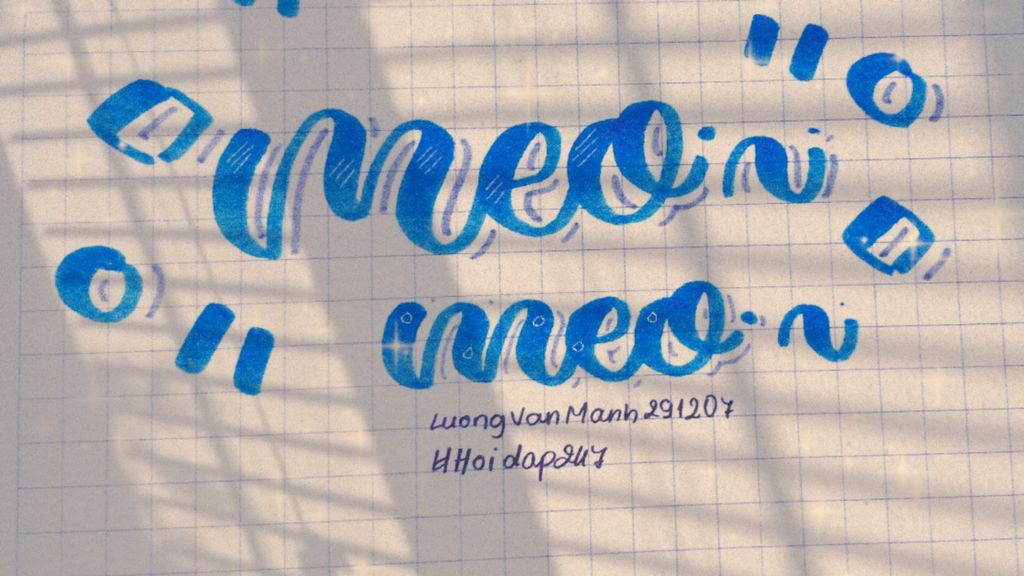 meo
meo
LuongVanManh291207
#Hoidap247